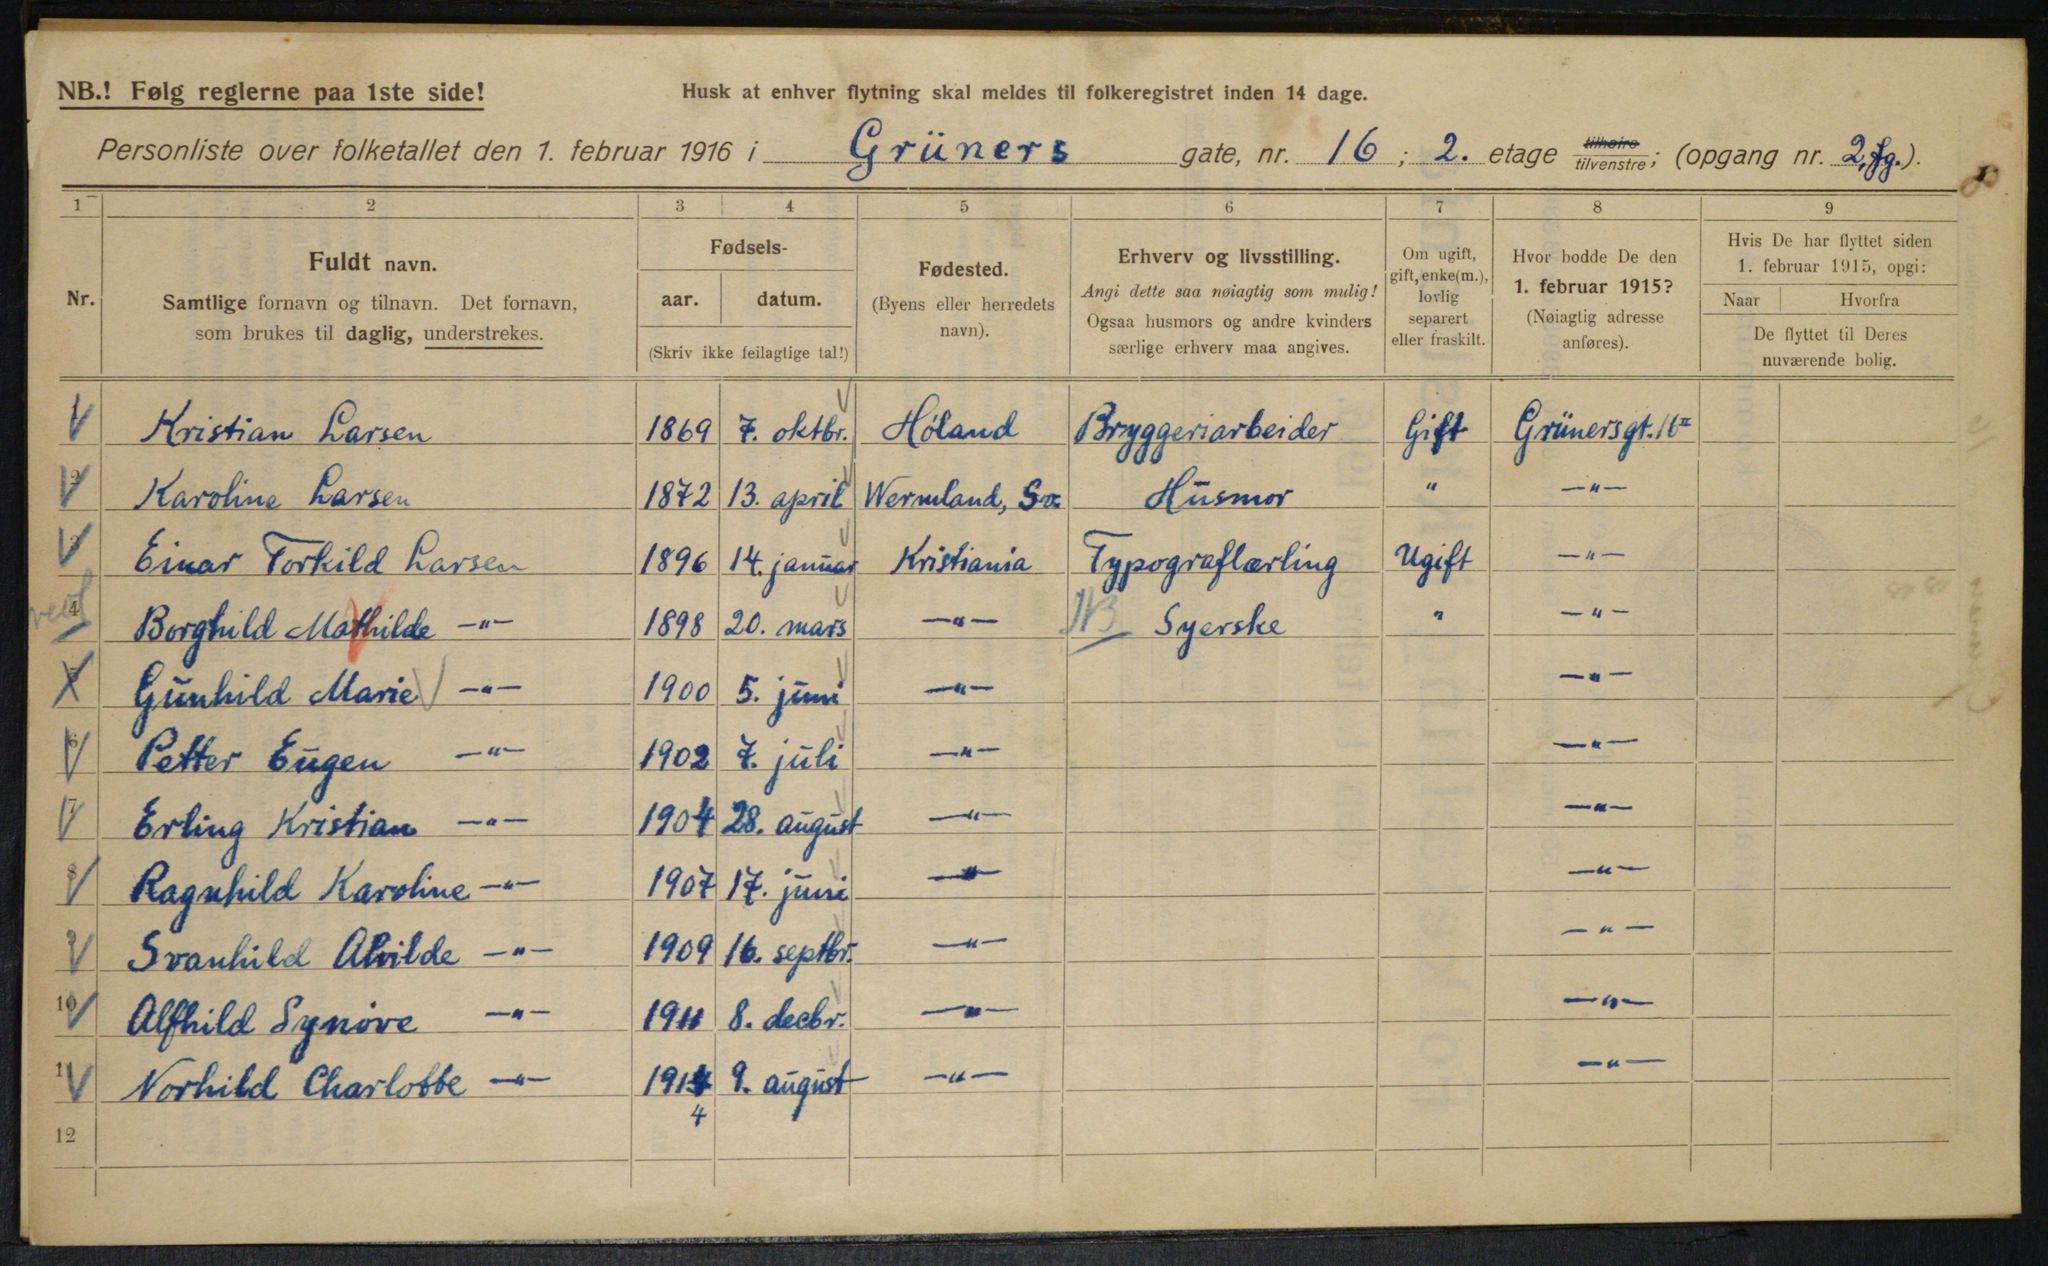 NB.! Følg reglerne paa 1ste side!
Husk at enhver flytning skal meldes til folkeregistret inden 14 dage.
Personliste over folketallet den 1. februar 1916 i Grüners gate, nr. 16 ; 2. etage tilhøire tilvenstre; (opgang nr. 2, fg.).
1 2 3 4 5 6 7 8 9
Nr.
Fuldt navn.
Samtlige fornavn og tilnavn. Det fornavn, som brukes til daglig, understrekes.
Fødsels-
aar. datum.
(Skriv ikke feilagtige tal!)
Fødested.
(Byens eller herredets navn).
Erhverv og livsstilling.
Angi dette saa nøiagtig som mulig!
Ogsaa husmors og andre kvinders særlige erhverv maa angives.
Om ugift, gift, enke(m.), lovlig separert eller fraskilt.
Hvor bodde De den 1. februar 1915?
(Nøiagtig adresse anføres).
Hvis De har flyttet siden 1. februar 1915, opgi:
Naar Hvorfra
De flyttet til Deres nuværende bolig.
1 Kristian Larsen 1869 7. oktbr. Höland Bryggeriarbeider Gift Grünersgt. 16 II
2 Karoline Larsen 1872 13. april Wermland, Sv. Husmor " —"—
3 Einar Torkild Larsen 1896 14. januar Kristiania Typograflærling Ugift —"—
4 Borghild Mathilde —"— 1898 20. mars —"— NB Syerske " —"—
5 Gunhild Marie —"— 1900 5. juni —"— —"—
6 Petter Eugen —"— 1902 7. juli —"— —"—
7 Erling Kristian —"— 1904 28. august —"— —"—
8 Ragnhild Karoline —"— 1907 17. juni —"— —"—
9 Svanhild Alvilde —"— 1909 16. septbr. —"— —"—
10 Alfhild Synöve —"— 1911 8. decbr. —"— —"—
11 Norhild Charlotte —"— 1914 9. august —"— —"—
4
12